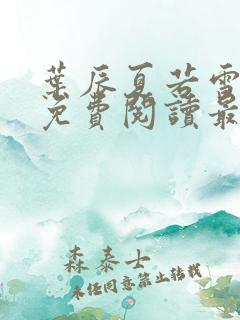 葉辰夏若雪
免費閱讀最
森泰士
未經同意禁止轉載